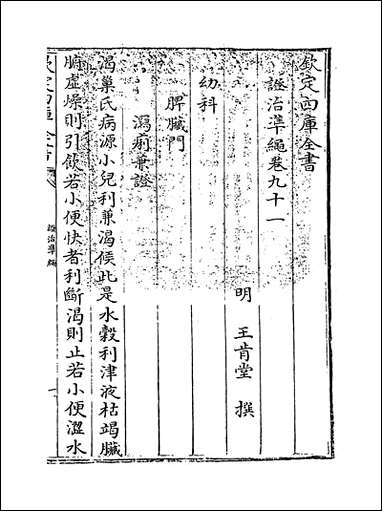 欽定四庫全書
證治凖繩卷九十一
明 王肯堂 撰
幼科
脾臟門
瀉痢兼證
渴巢氏病源小兒利兼渴候此是水穀利津液枯竭臟
腑虛燥則引飲若小便快者利斷渴則止若小便澀水
欽定四庫全書
證治凖繩
一